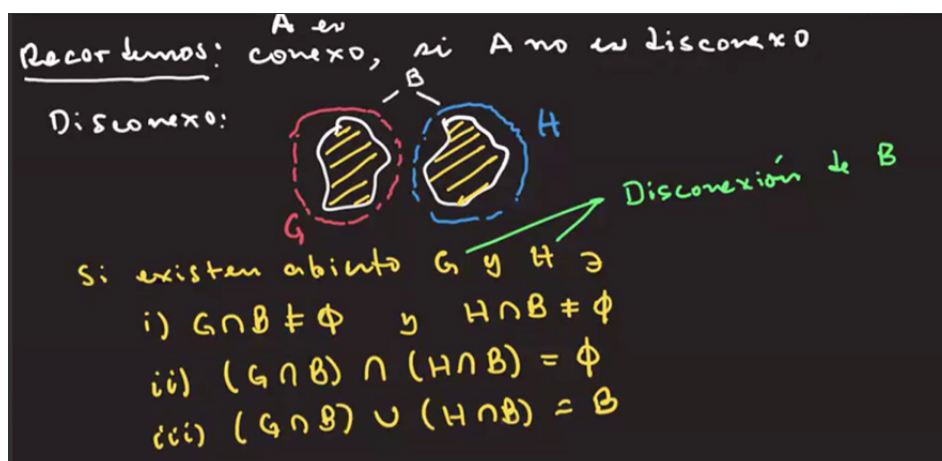 Recordemos: A es conexo, si A no es disconexo
B
Disconexo:
H
Disconexión de B
G
Si existen abierto G y H ∋
i) G∩B ≠ ϕ y H∩B ≠ ϕ
ii) (G∩B) ∩ (H∩B) = ϕ
iii) (G∩B) ∪ (H∩B) = B